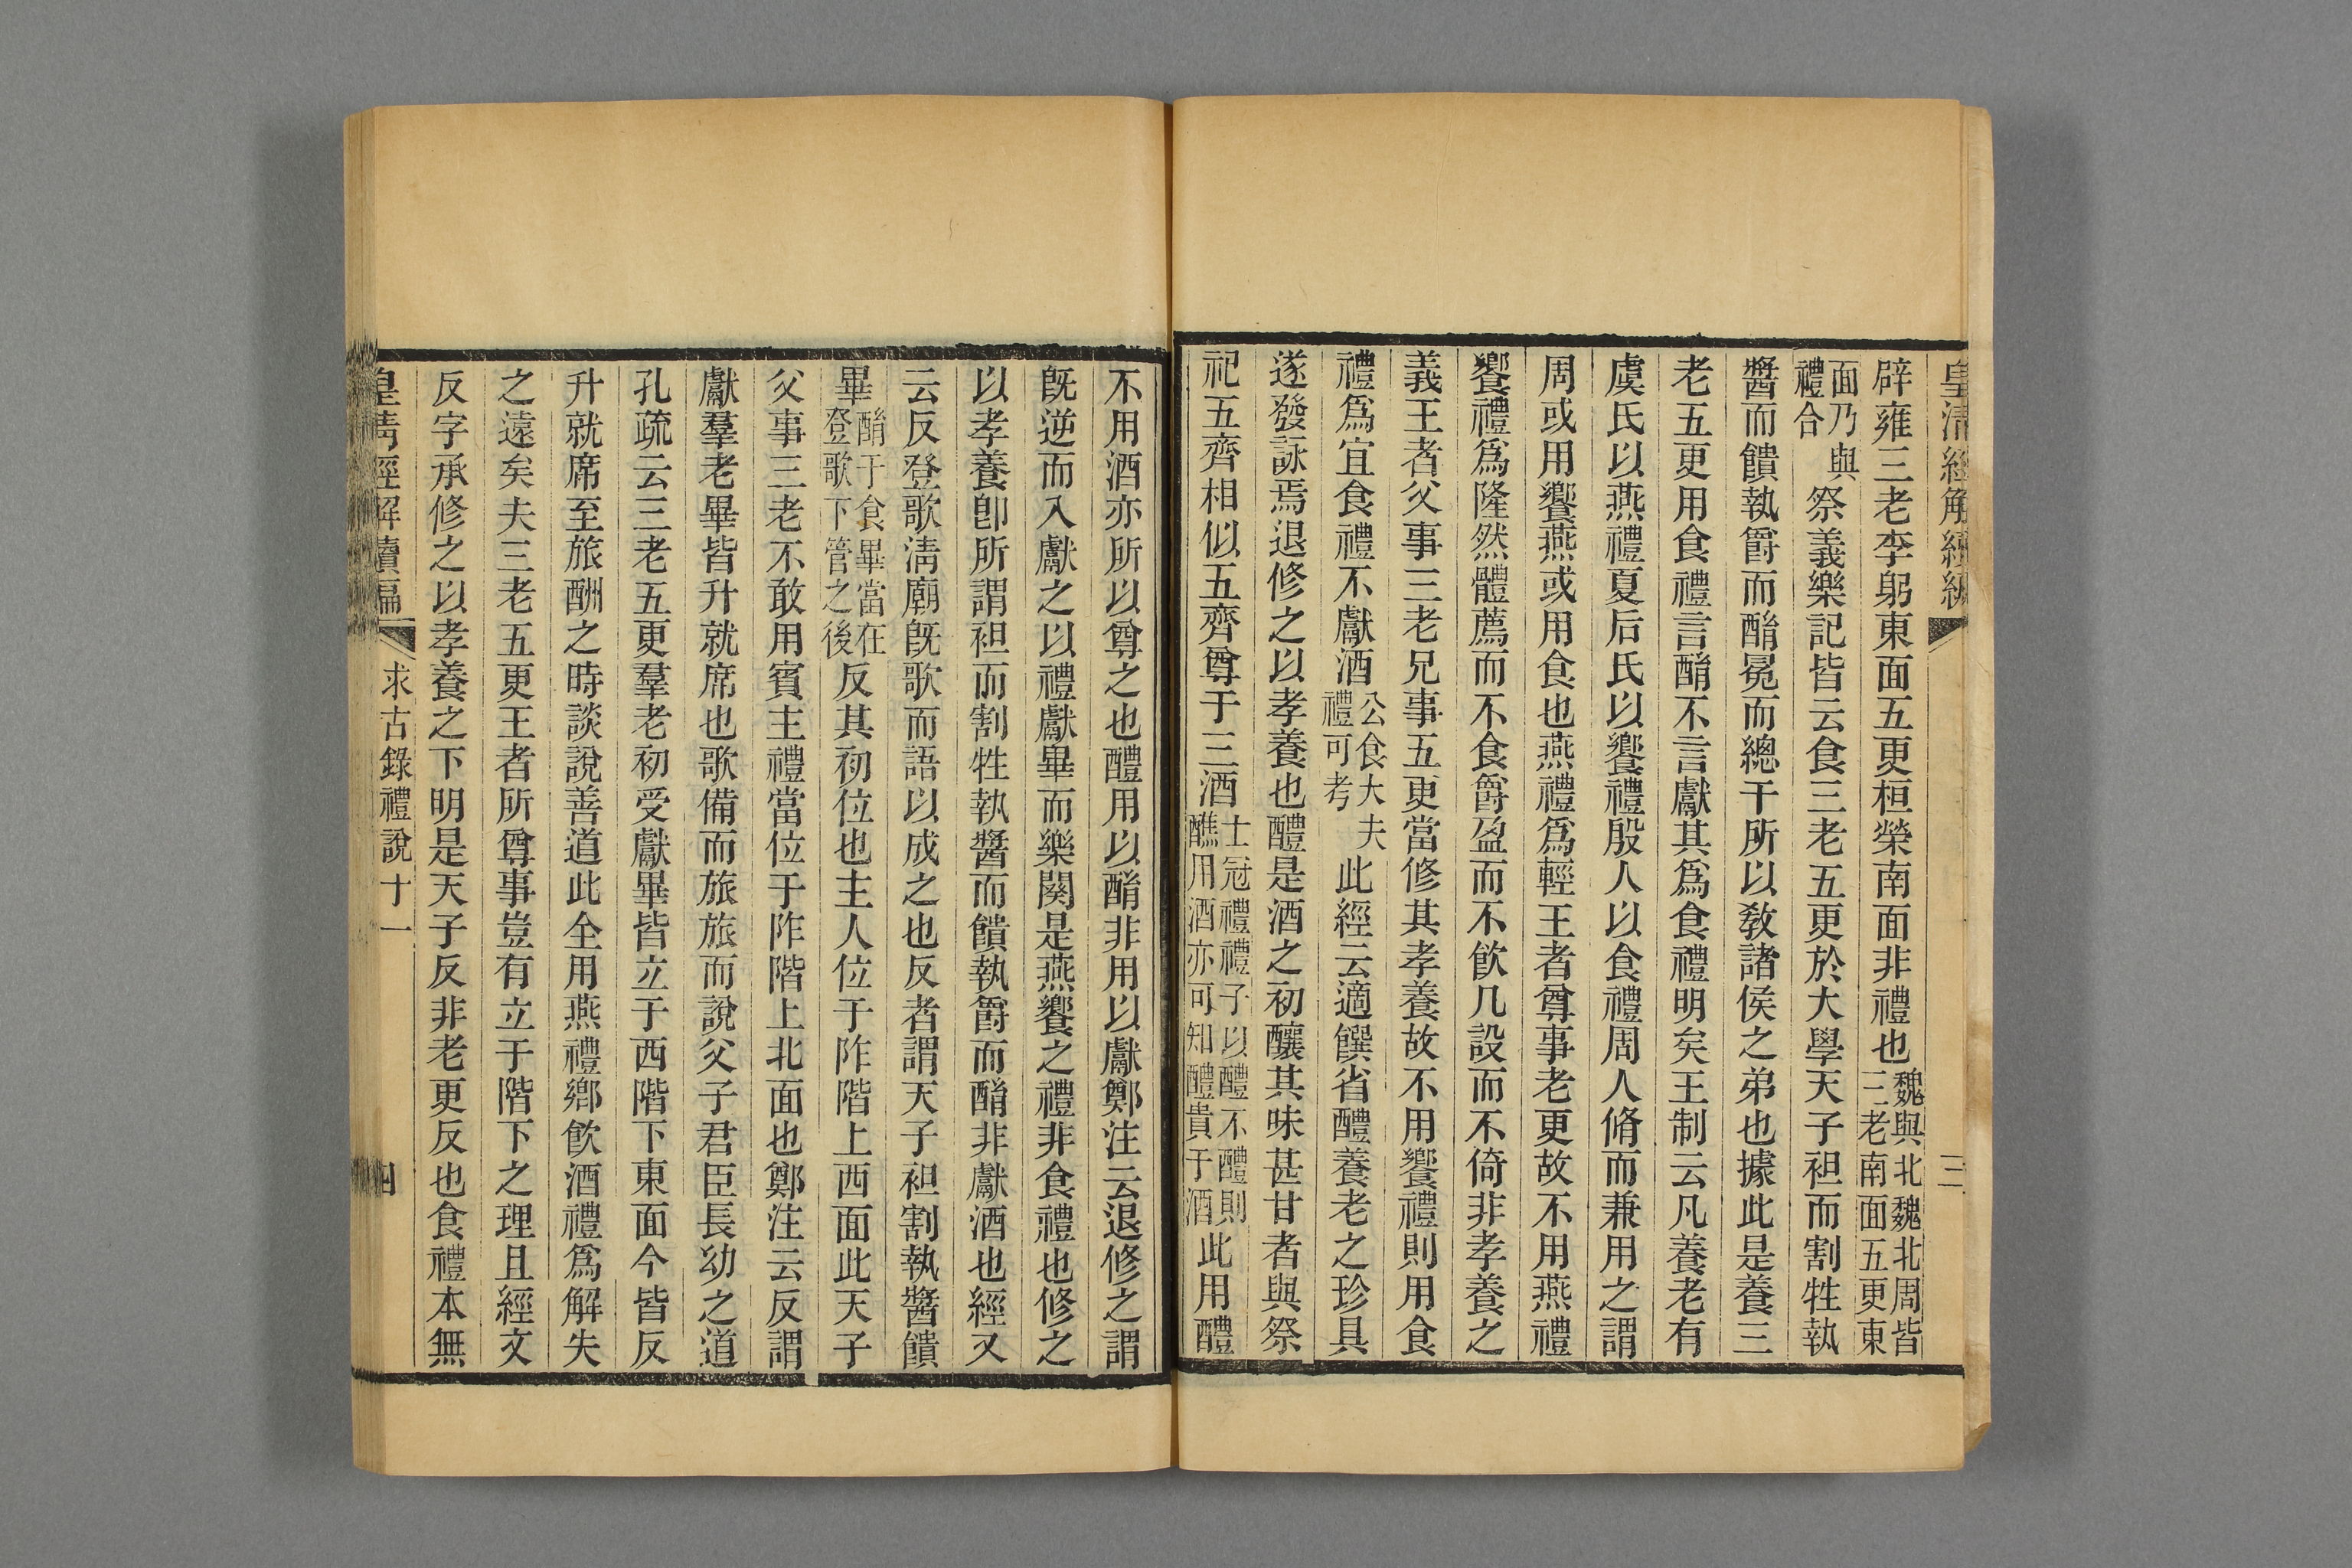 皇清經解續編
三
辟雍三老李躬東面五更桓榮南面非禮也魏與北魏北周皆三老南面五更東
面乃與禮合祭義樂記皆云食三老五更於大學天子袒而割牲執
醬而饋執爵而酳冕而總干所以敎諸侯之弟也據此是養三
老五更用食禮言酳不言獻其爲食禮明矣王制云凡養老有
虞氏以燕禮夏后氏以饗禮殷人以食禮周人脩而兼用之謂
周或用饗燕或用食也燕禮爲輕王者尊事老更故不用燕禮
饗禮爲隆然體薦而不食爵盈而不飮几設而不倚非孝養之
義王者父事三老兄事五更當修其孝養故不用饗禮則用食
禮爲宜食禮不獻酒公食大夫禮可考此經云適饌省醴養老之珍具
遂發詠焉退修之以孝養也醴是酒之初釀其味甚甘者與祭
祀五齊相似五齊尊于三酒士冠禮禮子以醴不醴則醮用酒亦可知醴貴于酒此用醴
不用酒亦所以尊之也醴用以酳非用以獻鄭注云退修之謂
旣逆而入獻之以禮獻畢而樂闋是燕饗之禮非食禮也修之
以孝養卽所謂袒而割牲執醬而饋執爵而酳非獻酒也經又
云反登歌淸廟旣歌而語以成之也反者謂天子袒割執醬饋
畢酳于食畢當在登歌下管之後反其初位也主人位于阼階上西面此天子
父事三老不敢用賓主禮當位于阼階上北面也鄭注云反謂
獻羣老畢皆升就席也歌備而旅旅而說父子君臣長幼之道
孔疏云三老五更羣老初受獻畢皆立于西階下東面今皆反
升就席至旅酬之時談說善道此全用燕禮鄕飮酒禮爲解失
之遠矣夫三老五更王者所尊事豈有立于階下之理且經文
反字承修之以孝養之下明是天子反非老更反也食禮本無
皇清經解續編
求古錄禮說十一
四